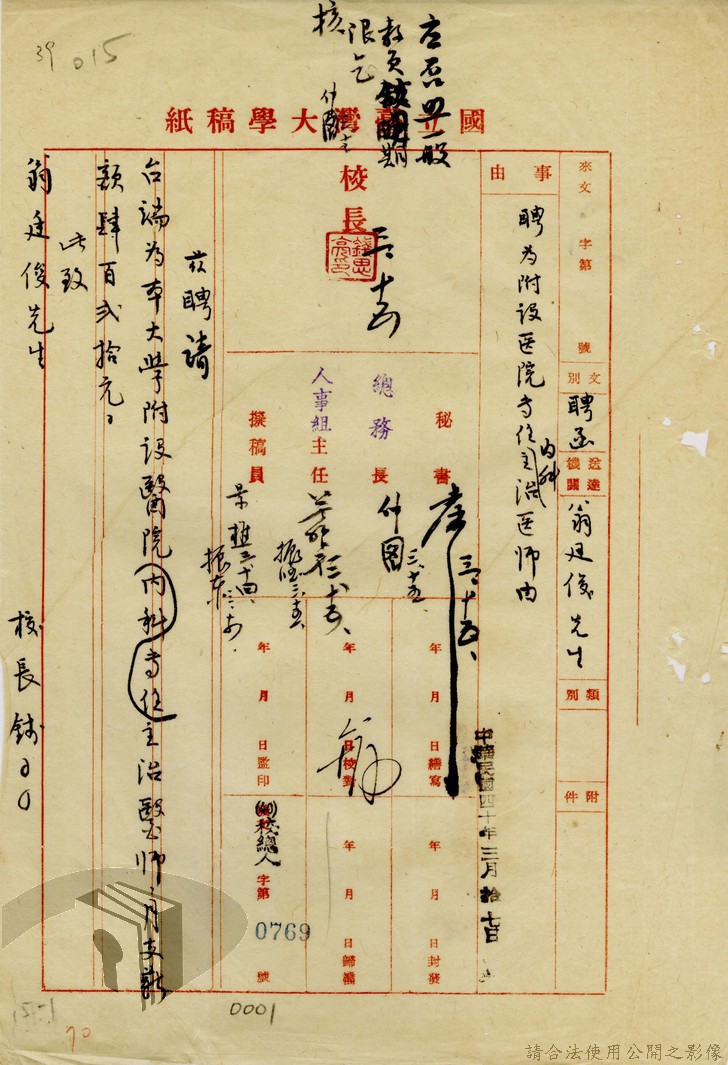 39
015
核
限乞
教員
期
一般
國立臺灣大學稿紙
來文 字第 號
文別
聘函
送達機關
翁廷俊先生
類別
附件
事由
聘為附設医院专任內科主治医师由
中華民國四十年三月拾七日
校長
錢思亮印
三、十五
秘書
三、十五、
總務長
仲圖
三、十五、
人事組主任
三、十五、
撰稿員
三、十四、
年 月 日繕寫
年 月 日校對
年 月 日監印
年 月 日封發
年 月 日歸檔
(40)校總人字第 0769 號
茲聘請
台端為本大學附設醫院內科专任主治醫师月支薪
額肆百貳拾元。
此致
翁廷俊先生
校長錢○○
0001
70
請合法使用公開之影像